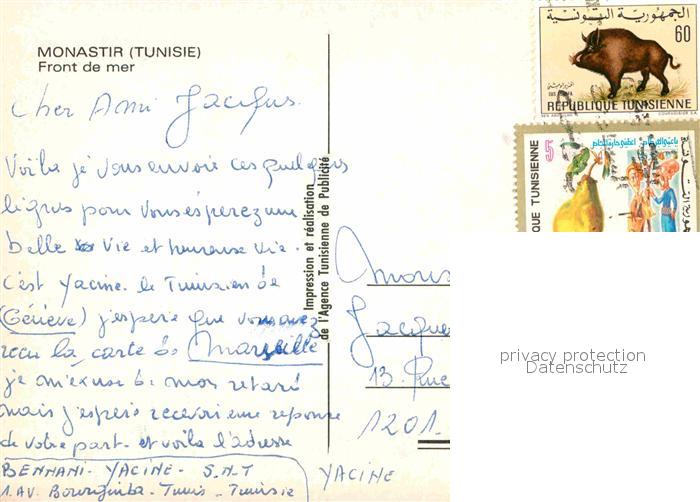 MONASTIR (TUNISIE)
Front de mer
Cher Ami Jacques
Voila je vous envoie ces quelques
lignes pour vous esperez une
belle vie et heureuse vie.
c'est Yacine le Tunisien de
(Génève) j'espere que vous avez
recu la carte de Marseille
je m'excuse de mon retard
mais j'espers recevoir une reponse
de votre part. et voila l'adresse
BENNANI - YACINE - S.N.T
1. AV. Bourguiba - Tunis - Tunisie
YACINE
Impression et réalisation
de l'Agence Tunisienne de Publicité
الجمهورية التونسية
60
REPUBLIQUE TUNISIENNE
5
QUE TUNISIENNE
Jacque
13. Rue
1201.
privacy protection
Datenschutz